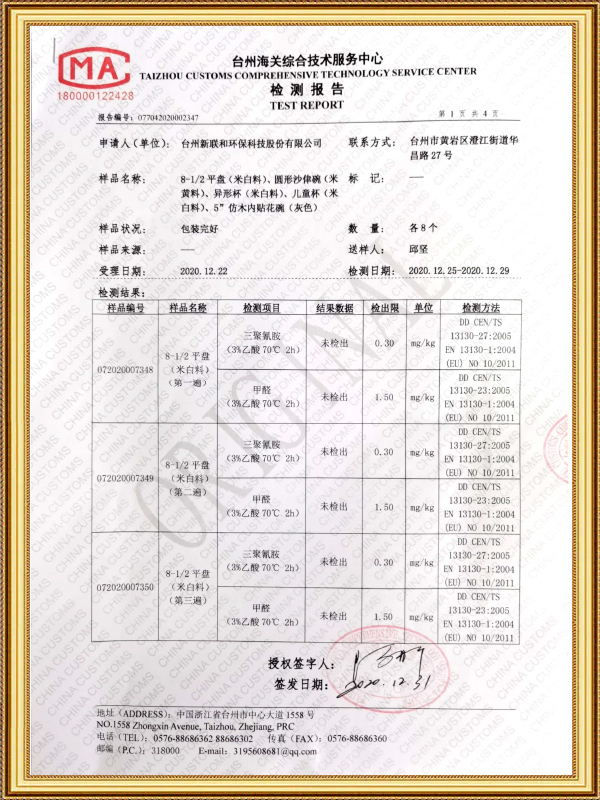 MA
180000122428
台州海关综合技术服务中心
TAIZHOU CUSTOMS COMPREHENSIVE TECHNOLOGY SERVICE CENTER
检 测 报 告
TEST REPORT
报告编号: 077042020002347
第 1 页 共 4 页
申请人（单位）: 台州新联和环保科技股份有限公司
联系方式: 台州市黄岩区澄江街道华
昌路 27 号
样品名称: 8-1/2 平盘（米白料）、圆形沙俥碗（米
黄料）、异形杯（米白料）、儿童杯（米
白料）、5” 仿木内贴花碗（灰色）
标 记: ——
样品状况: 包装完好
数 量: 各 8 个
样品来源: ——
送样人: 邱坚
受理日期: 2020.12.22
检测日期: 2020.12.25-2020.12.29
检测结果:
样品编号 样品名称 检测项目 结果数据 检出限 单位 检测方法
072020007348
8-1/2 平盘
（米白料）
（第一遍）
三聚氰胺
（3%乙酸 70℃ 2h）
未检出 0.30 mg/kg
DD CEN/TS
13130-27:2005
EN 13130-1:2004
(EU) NO 10/2011
甲醛
（3%乙酸 70℃ 2h）
未检出 1.50 mg/kg
DD CEN/TS
13130-23:2005
EN 13130-1:2004
(EU) NO 10/2011
072020007349
8-1/2 平盘
（米白料）
（第二遍）
三聚氰胺
（3%乙酸 70℃ 2h）
未检出 0.30 mg/kg
DD CEN/TS
13130-27:2005
EN 13130-1:2004
(EU) NO 10/2011
甲醛
（3%乙酸 70℃ 2h）
未检出 1.50 mg/kg
DD CEN/TS
13130-23:2005
EN 13130-1:2004
(EU) NO 10/2011
072020007350
8-1/2 平盘
（米白料）
（第三遍）
三聚氰胺
（3%乙酸 70℃ 2h）
未检出 0.30 mg/kg
DD CEN/TS
13130-27:2005
EN 13130-1:2004
(EU) NO 10/2011
甲醛
（3%乙酸 70℃ 2h）
未检出 1.50 mg/kg
DD CEN/TS
13130-23:2005
EN 13130-1:2004
(EU) NO 10/2011
ORIGINAL
授权签字人:
签发日期: 2020.12.31
地址（ADDRESS）: 中国浙江省台州市中心大道 1558 号
NO.1558 Zhongxin Avenue, Taizhou, Zhejiang, PRC
电话（TEL）: 0576-88686362 88686302 传真（FAX）: 0576-88686360
邮编（P.C.）: 318000 E-mail: 3195608681@qq.com